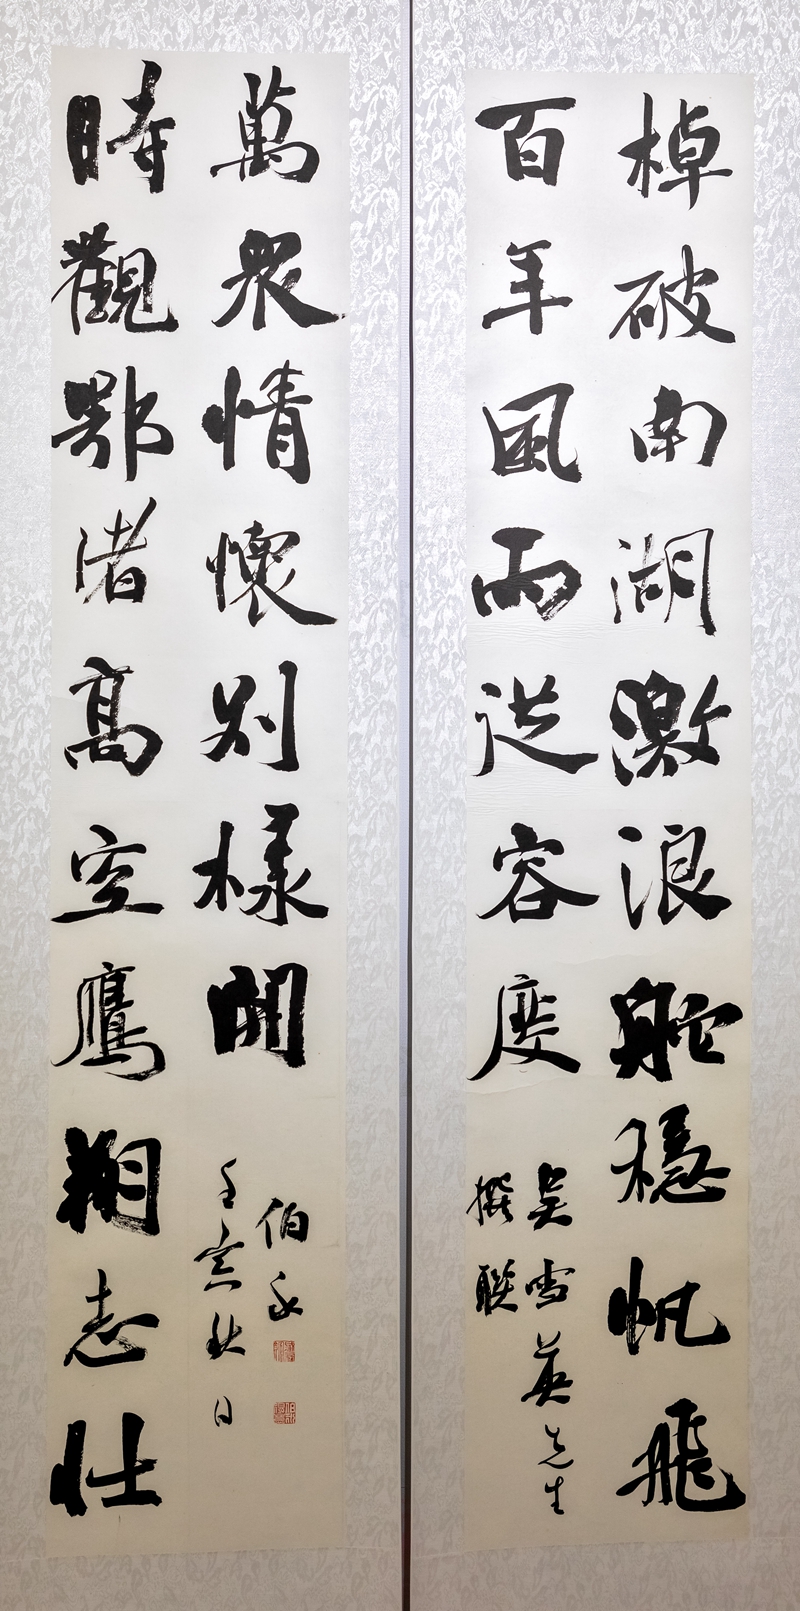 棹破南湖激浪舵穩帆飛
百年風雨從容度
吳雪英先生
撰聯
時觀鄂渚高空鷹翔志壯
萬眾情懷別樣開
壬寅秋日
伯永